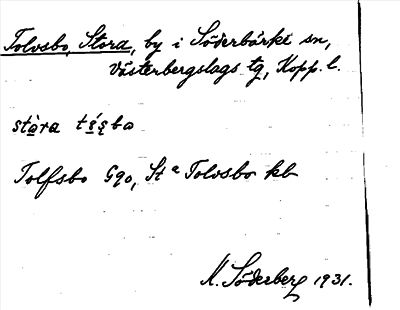 Tolvsbo, Stora, by i Söderbärke sn,
Västerbergslags tg, Kopp. l.
stàra
Tolfsbo Gqo, St a Tolvsbo kb
M. Söderberg 1931.